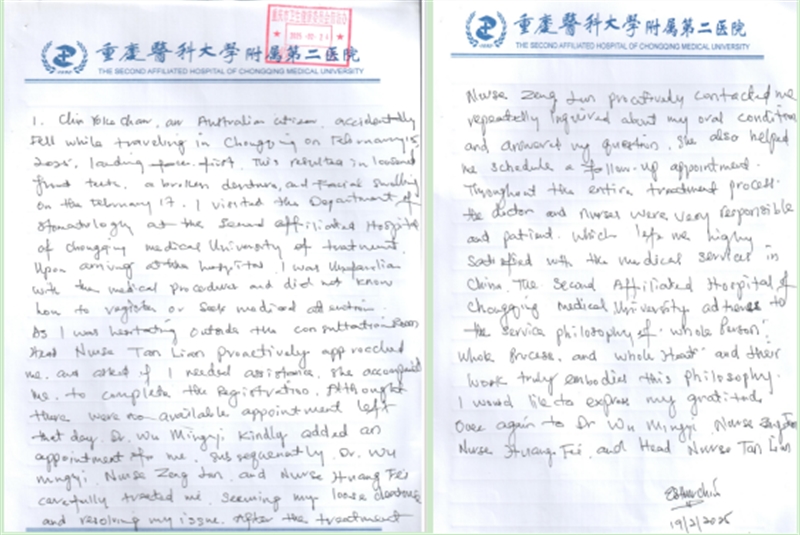 重慶醫科大學附属第二医院
THE SECOND AFFILIATED HOSPITAL OF CHONGQING MEDICAL UNIVERSITY
2025-02-24
I. Chin Yoke Chan, an Australian citizen, accidentally
fell while traveling in Chongqing on February 15,
2025, landing face first. This resulted in loosened
front teeth, a broken denture, and facial swelling
on the February 17. I visited the Department of
Stomatology at the Second affiliated Hospital
of Chongqing medical University of treatment.
Upon arriving at the hospital, I was Unfamiliar
with the medical procedures and did not know
how to register or seek medical attention.
As I was hesitating outside the consultation Room
Head Nurse Tan Lian proactively approached
me, and asked if I needed assistance. She accompanied
me to complete the Registration. Althought
there were no available appointment left
that day. Dr. Wu Mingyi kindly added an
appointment for me. Subsequently, Dr. Wu
mingyi, Nurse Zeng and Nurse Huang Fei
carefully treated me, my loose denture
and resolving my issue. After the treatment
重慶醫科大學附属第二医院
THE SECOND AFFILIATED HOSPITAL OF CHONGQING MEDICAL UNIVERSITY
Nurse Zeng proactively contacted me
repeatedly inquired about my oral condition
and answered my question. She also helped
me schedule a follow-up appointment.
Throughout the entire treatment process.
the doctor and nurses were very responsible
and patient. which left me highly
satisfied with the medical services in
China. The Second Affiliated Hospital of
Chongqing Medical University adheres to
the service philosophy of "whole Person,
whole Process, and whole Heart" and their
work truly embodies this philosophy.
I would like to express my gratitude
once again to Dr Wu Mingyi, Nurse Zeng
Nurse Huang Fei, and Head Nurse Tan Lian
19/2/2025